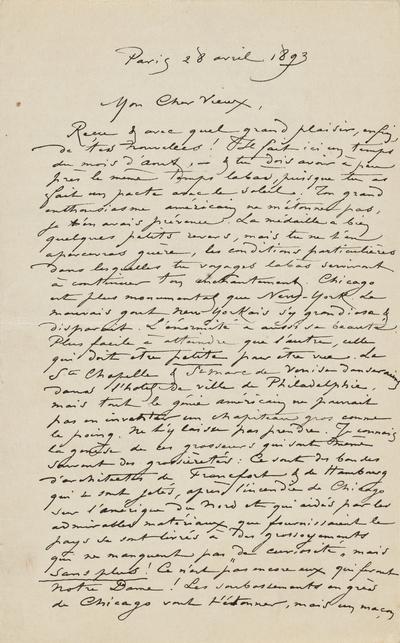 Paris 28 avril 1893
Mon Cher Vieux,
Reçu & avec quel grand plaisir, enfin,
de tes nouvelles! Il fait ici un temps
du mois d'août, — & tu dois avoir à peu
près le même temps labas, puisque tu as
fait un pacte avec le soleil. Ton grand
enthousiasme américain ne m'étonne pas,
je t'en avais prévenu. La médaille a bien
quelques petits revers, mais tu ne t'en
apercevras guère, les conditions particulières
dans lesquelles tu voyages labas serviront
à continuer ton enchantement. Chicago
est plus monumental que New-York. Le
mauvais gout New Yorkais s'y grandiose &
disparait. L'énormité a aussi sa beauté
Plus facile à atteindre que l'autre, celle
qui doit etre petite pour être vue. La
Ste Chapelle & St marc de Venise danseraient
dans l'hôtel de ville de Philadelphie,
mais tout le génie américain ne pourrait
pas en inventer un chapiteau gros comme
le poing. Ne t'y laisse pas prendre. Je connais
la genèse de ces grosseurs qui sont même
souvent des grossièretés: Ce sont des bandes
d'architectes de Francfort & de Hambourg
qui se sont jetés, après l'incendie de Chicago
sur l'amérique du Nord et qui aidés par les
admirables matériaux que fournissaient le
pays se sont livrés à des grossoyements
qui ne manquent pas "de curiosité", mais
Sans plus! Ce n'est pas encore eux qui feront
Notre Dame! Les soubassements en grès
de Chicago vont t'étonner, mais un maçon